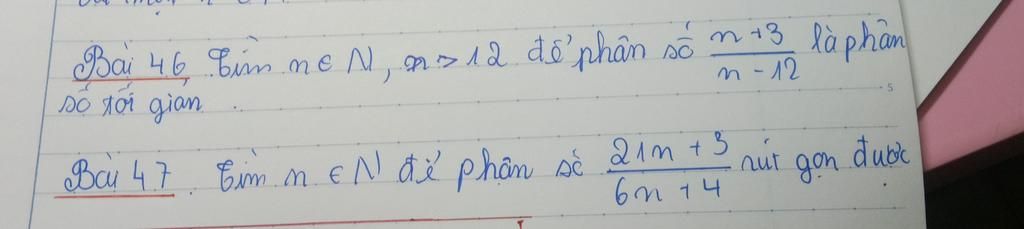 Bài 46 Tìm n ∈ N, n > 12 để phân số \frac{n+3}{n-12} là phân
số tối giản.
Bài 47. Tìm n ∈ N để phân số \frac{21n+3}{6n+4} rút gọn được